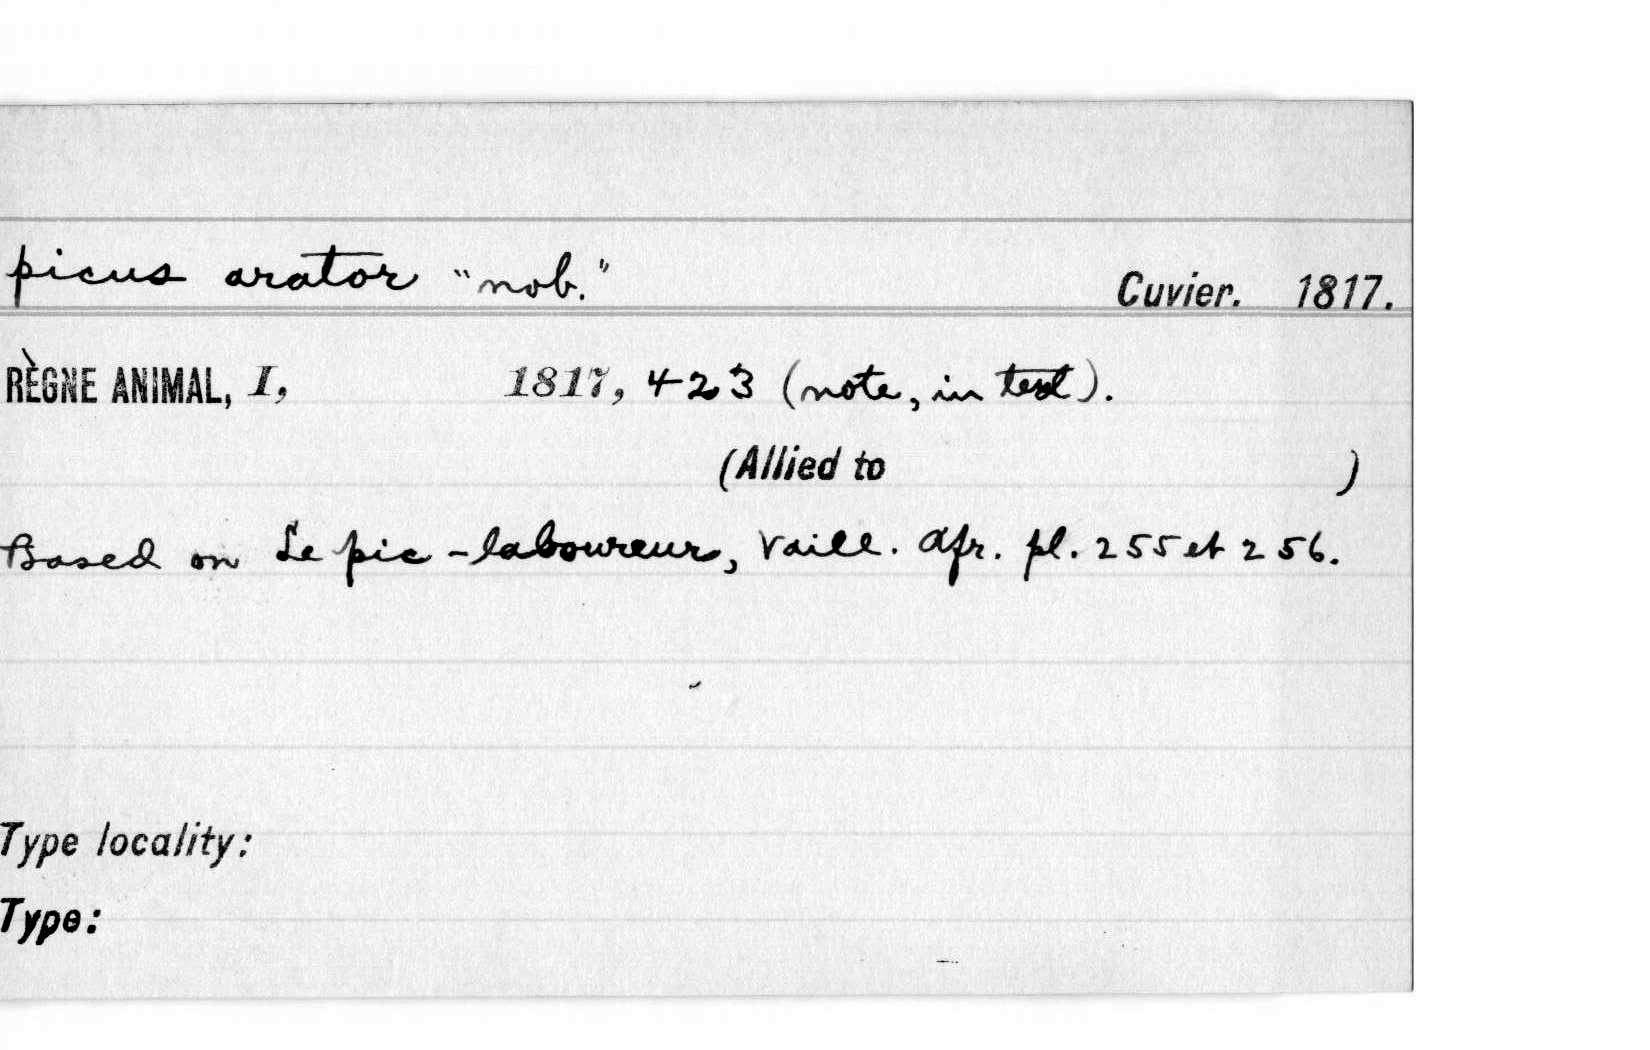 picus arator "nob." Cuvier. 1817.
RÈGNE ANIMAL, I, 1817, 423 (note, in text).
(Allied to )
Based on Le pic-laboureur, Vaill. Afr. pl. 255 et 256.
Type locality:
Type: